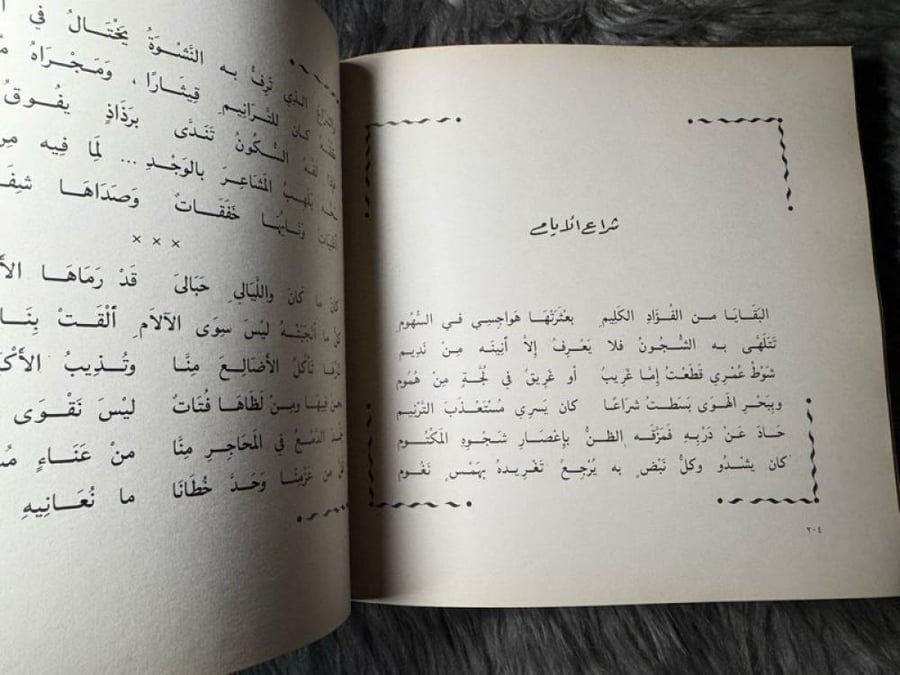 شراع الأيام
البَقَايَا من الفُؤادِ الكَلِيمِ بعْثَرَتْهَا هَواجِسِي في السُّهُومِ
تَتَلَهَّى به الشُّجُونُ فلا يَعْرِفُ إلاَّ أنِينَه مِنْ نَدِيمِ
شَوْطُ عُمْرِي قَطَعْتُ إمَّا غَرِيبُ أو غَرِيقٌ في لُجَّةٍ مِنْ هُمُومِ
وبِبَحْرِ الهَوَى بَسَطتُ شِرَاعًا كان يَسْرِي مُسْتَعْذَبَ التَّرْنِيمِ
حَادَ عَنْ دَرْبِهِ فَمَزَّقَه الظنُّ بإعْصَارِ شَجْوِهِ المَكْتُومِ
كان يشْدُو وكلُّ نَبْضٍ به يُرْجِعُ تَغْرِيدَه بِهَمْسٍ نَغُومِ
٢٠٤
الذي تَرِفُّ به النَّشْوَةُ يَخْتَالُ في
كان للتَّرَانِيمِ قِيثَارًا، وَمَجْرَاهُ
السُّكُونُ تَنَدَّى بِرَذَاذٍ يفُوقُ
المَشَاعِرَ بالوَجْدِ ... لِمَا فيه مِن
خَفَقَاتٌ وَصَدَاهَا
× × ×
ما كَانَ واللَّيَالِي حَبَالَى قَدْ رَمَاهَا
ما أنْجَبَتْهُ ليْسَ سِوَى الآلامِ ألْقَتْ بِنَا
تأكُلُ الأضَالِعَ مِنَّا وتُذِيبُ
فيها ومِنْ لَظَاهَا فُتَاتٌ ليْسَ نَقْوَى
الدَّمْعُ في المَحَاجِرِ مِنَّا مِنْ عَنَاءٍ
من عَزْمِنَا وَحَدَّ خُطَانَا ما نُعَانِيهِ